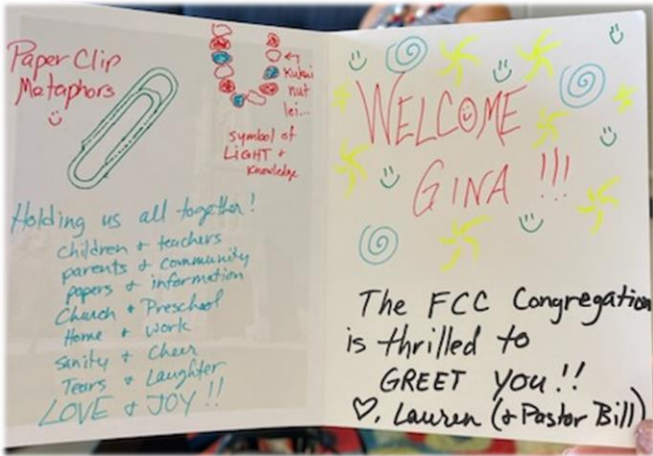 Paper Clip
Metaphors
Kukui
nut
lei...
symbol of
LIGHT +
Knowledge
Holding us all together!
children + teachers
parents + community
papers + information
Church + Preschool
Home + Work
Sanity + Cheer
Tears + Laughter
LOVE + JOY!!
WELCOME
GINA!!!
The FCC Congregation
is thrilled to
GREET you!!
♡, Lauren (+ Pastor Bill)